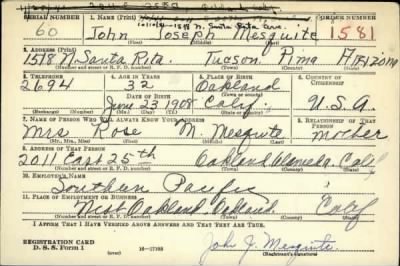 SERIAL NUMBER 1. NAME (Print) ORDER NUMBER
60 John Joseph Mesquite 1581
2. ADDRESS (Print)
1518 N. Santa Rita. Tucson, Pima Arizona
(Number and street or R. F. D. number) (Town) (County) (State)
3. TELEPHONE 4. AGE IN YEARS 5. PLACE OF BIRTH 6. COUNTRY OF CITIZENSHIP
2694 32 Oakland
DATE OF BIRTH (Town or county)
June 23 1908 Calif. U.S.A.
(Exchange) (Number) (Mo.) (Day) (Yr.) (State or country)
7. NAME OF PERSON WHO WILL ALWAYS KNOW YOUR ADDRESS 8. RELATIONSHIP OF THAT PERSON
Mrs Rose M. Mesquite Mother
(Mr., Mrs., Miss) (First) (Middle) (Last)
9. ADDRESS OF THAT PERSON
2011 East 25th Oakland Alameda. Calif
(Number and street or R. F. D. number) (Town) (County) (State)
10. EMPLOYER'S NAME
Southern Pacific
11. PLACE OF EMPLOYMENT OR BUSINESS
West Oakland, Oakland. Calif
(Number and street or R. F. D. number) (Town) (County) (State)
I AFFIRM THAT I HAVE VERIFIED ABOVE ANSWERS AND THAT THEY ARE TRUE.
REGISTRATION CARD
D. S. S. Form 1 16-17105 John J. Mesquite
(Registrant's signature)